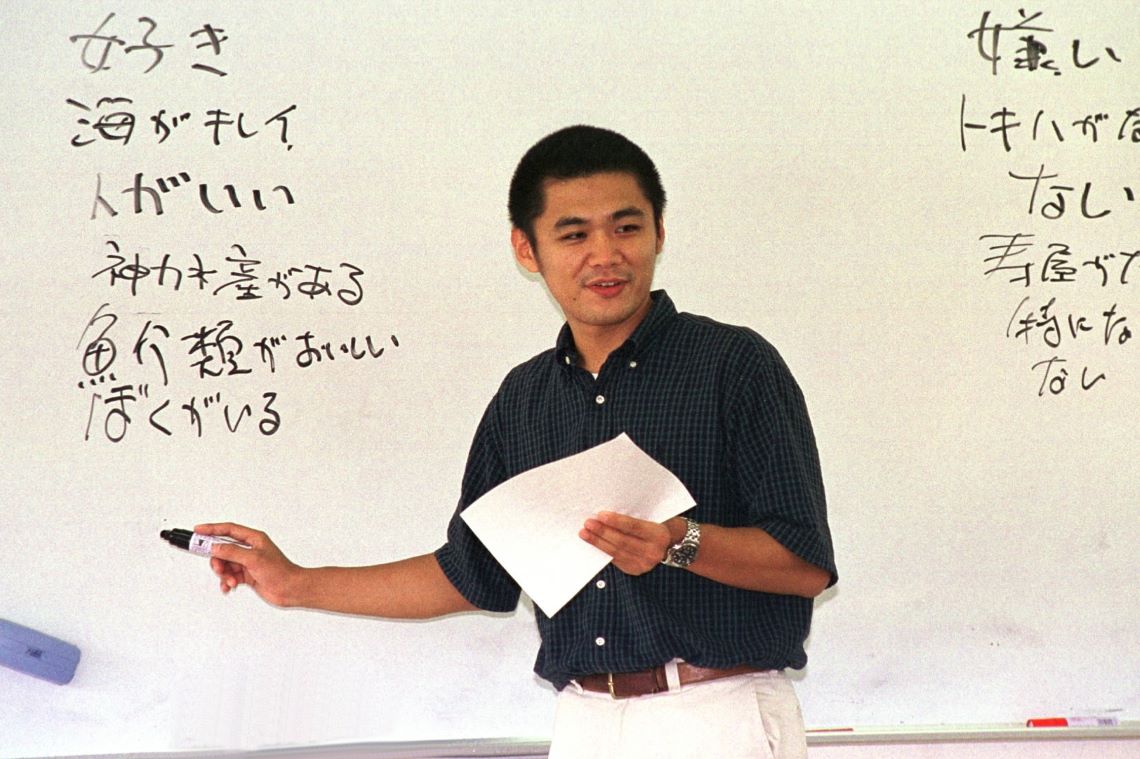 好き
海がキレイ
人がいい
神力水産がある
魚介類がおいしい
ぼくがいる
嫌い
トキハがな
ない
寿屋がな
特にな
ない